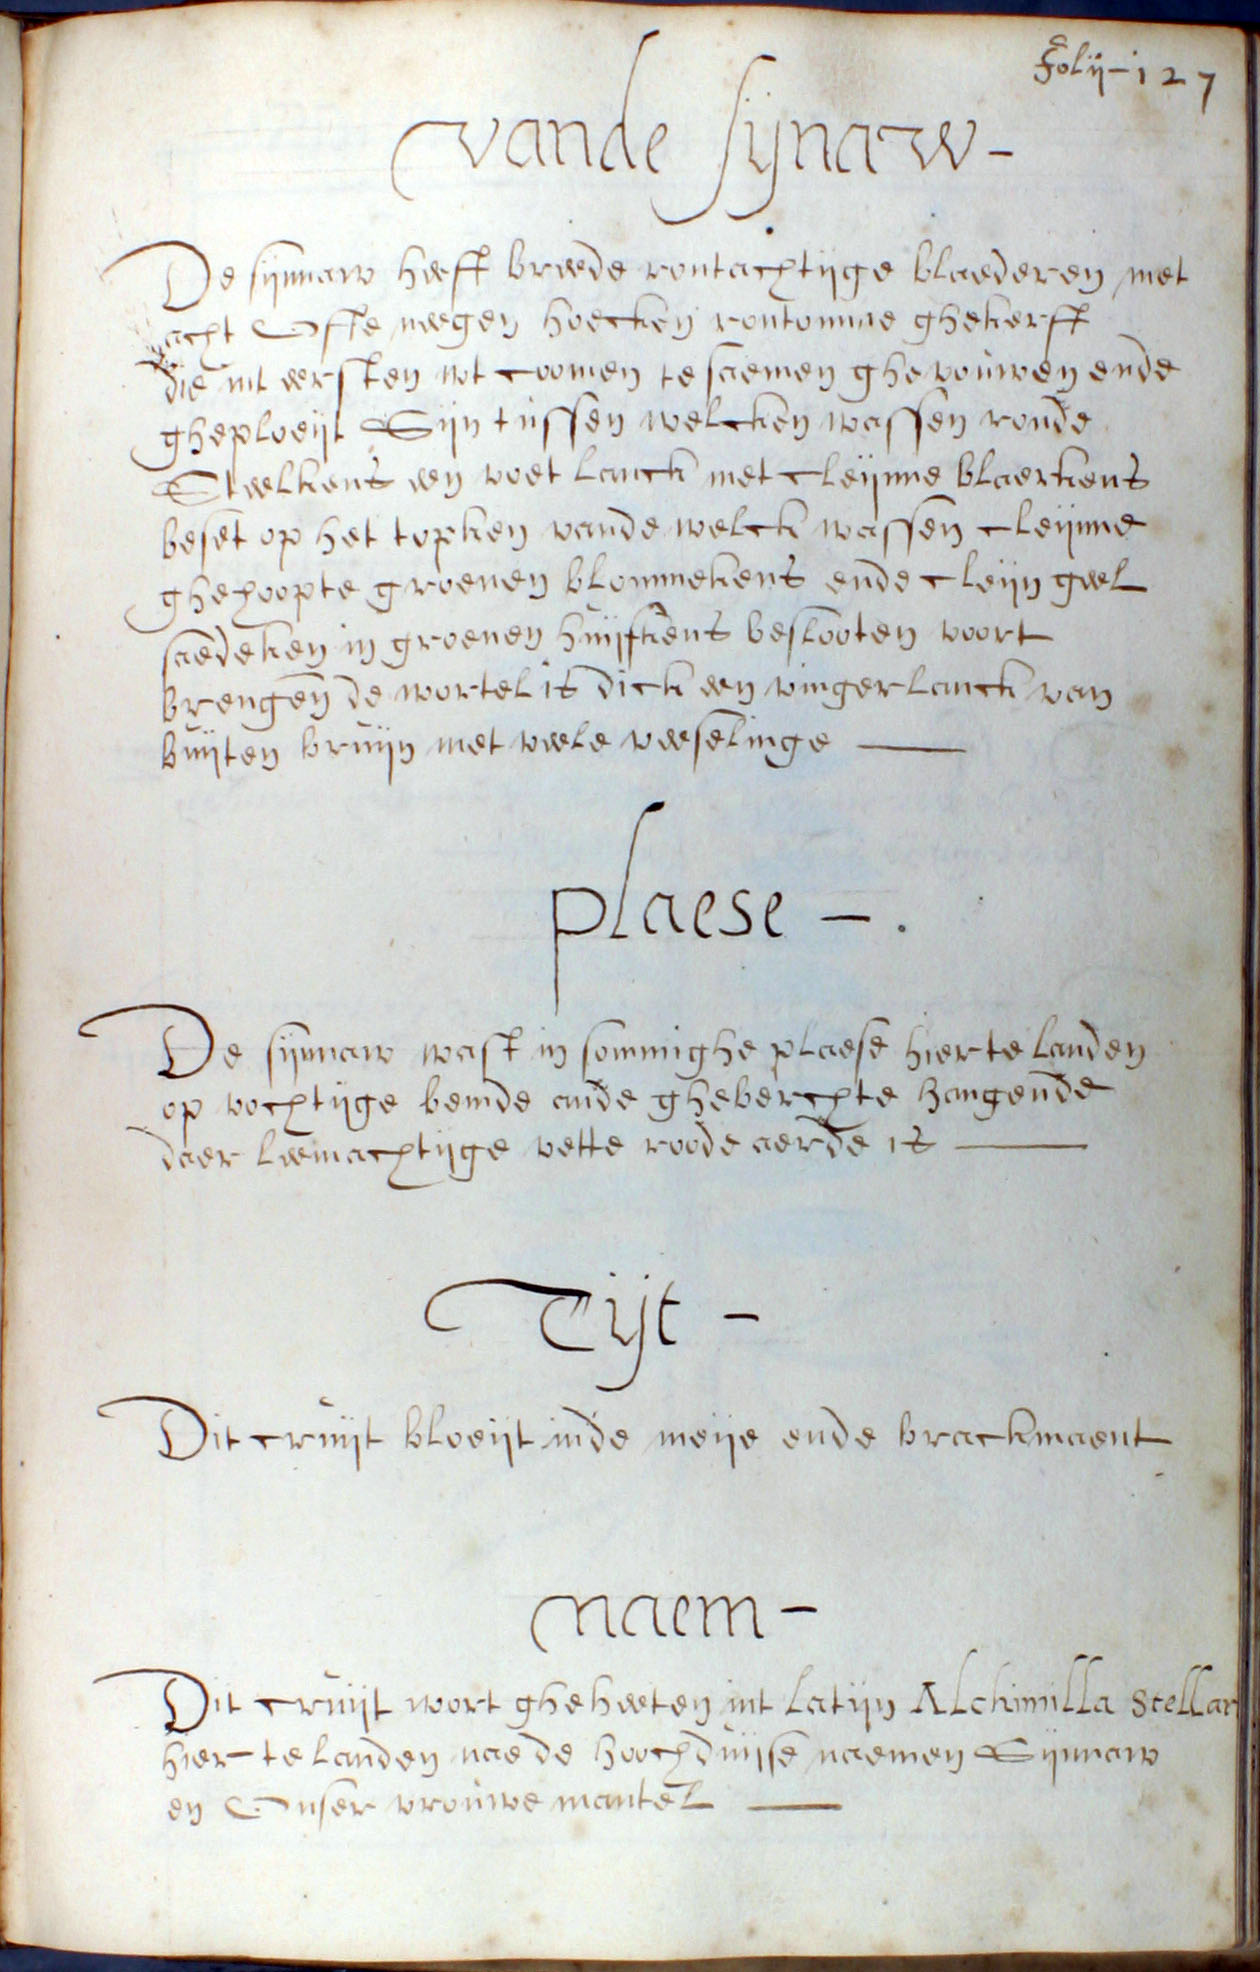 Folij - 127
vande sijnaw -
De sijnnaw heeft breede rontachtijge blaederen met
acht Ofte neegen hoecken rontomme ghekerft
die int eersten wt coomen te saemen ghevouwen ende
gheploeijt Sijn tussen welcken wassen ronde
Steelkens een voet lanck met cleijnne blaerkens
beset op het topken vande welck wassen cleijnne
ghehoopte groenen blommekens ende cleijn geel
saedeken in groenen huijskens beslooten voort
brengen de wortel is dick een vinger lanck van
buijten bruijn met veele veeselinge
plaese - .
De sijnnaw wast in sommighe plaese hier te landen
op vochtijge bemde ande gheberchte hangende
daer leemachtijge vette roode aerde is
Tijt -
Dit cruijt bloeijt inde meije ende brackmaent
naem -
Dit cruijt wort gheheeten int latijn Alchimilla Stellar
hier te landen nae de hoochduijse naemen Sijnnaw
en Onser vrouwe mantel